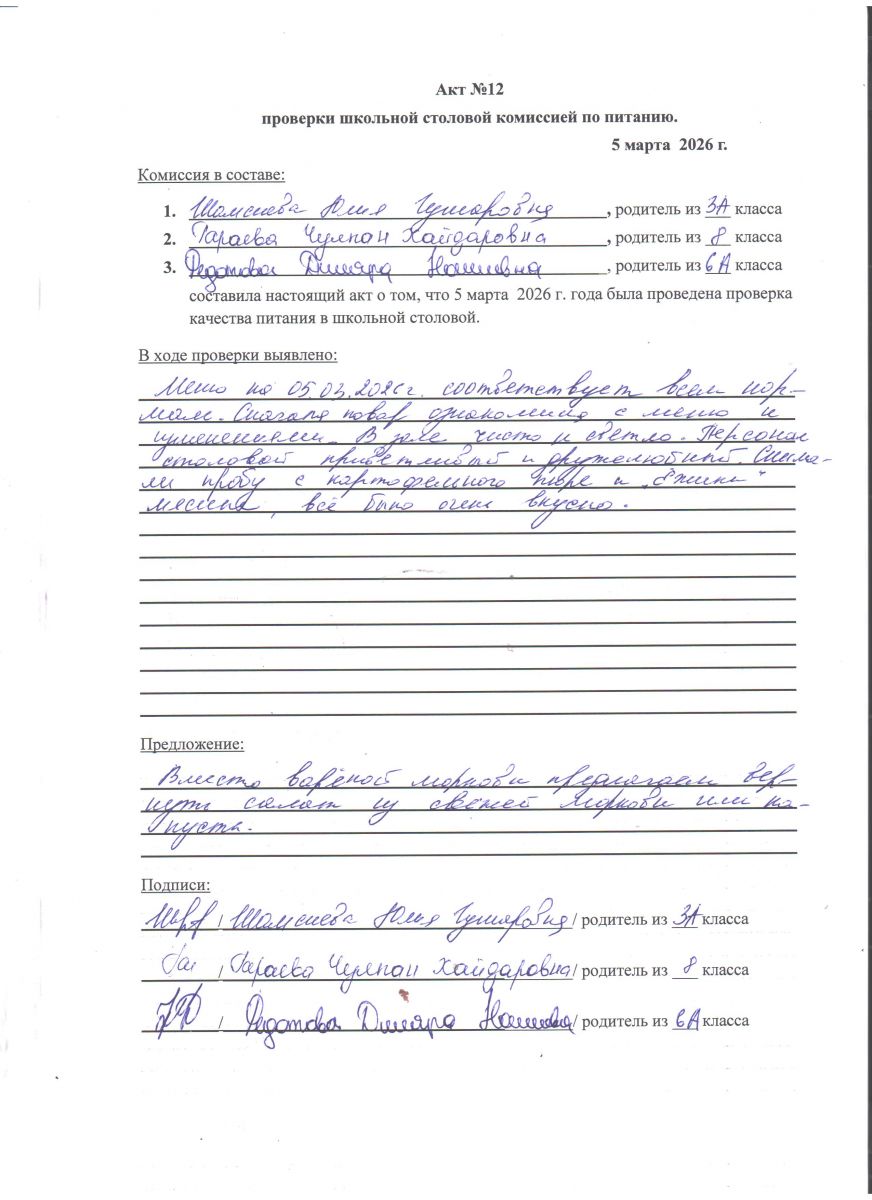 Акт №12
проверки школьной столовой комиссией по питанию.
5 марта 2026 г.
Комиссия в составе:
1. Шамсиева Юлия Гумаровна, родитель из 3А класса
2. Гараева Чулпан Хайдаровна, родитель из 8 класса
3. Федотова Динара Наилевна, родитель из 6А класса
составила настоящий акт о том, что 5 марта 2026 г. года была проведена проверка
качества питания в школьной столовой.
В ходе проверки выявлено:
Меню на 05.03.2026г. соответствует всем нор-
мам. Сначала повар ознакомила с меню и
изменениями. В зале чисто и светло. Персонал
столовой приветливый и дружелюбный. Снима-
ли пробу с картофельного пюре и "Ёжики"
мясные, всё было очень вкусно.
Предложение:
Вместо варёной моркови предлагаем вер-
нуть салат из свежей моркови или ка-
пусты.
Подписи:
/ Шамсиева Юлия Гумаровна / родитель из 3А класса
Гар / Гараева Чулпан Хайдаровна / родитель из 8 класса
/ Федотова Динара Наилевна / родитель из 6А класса